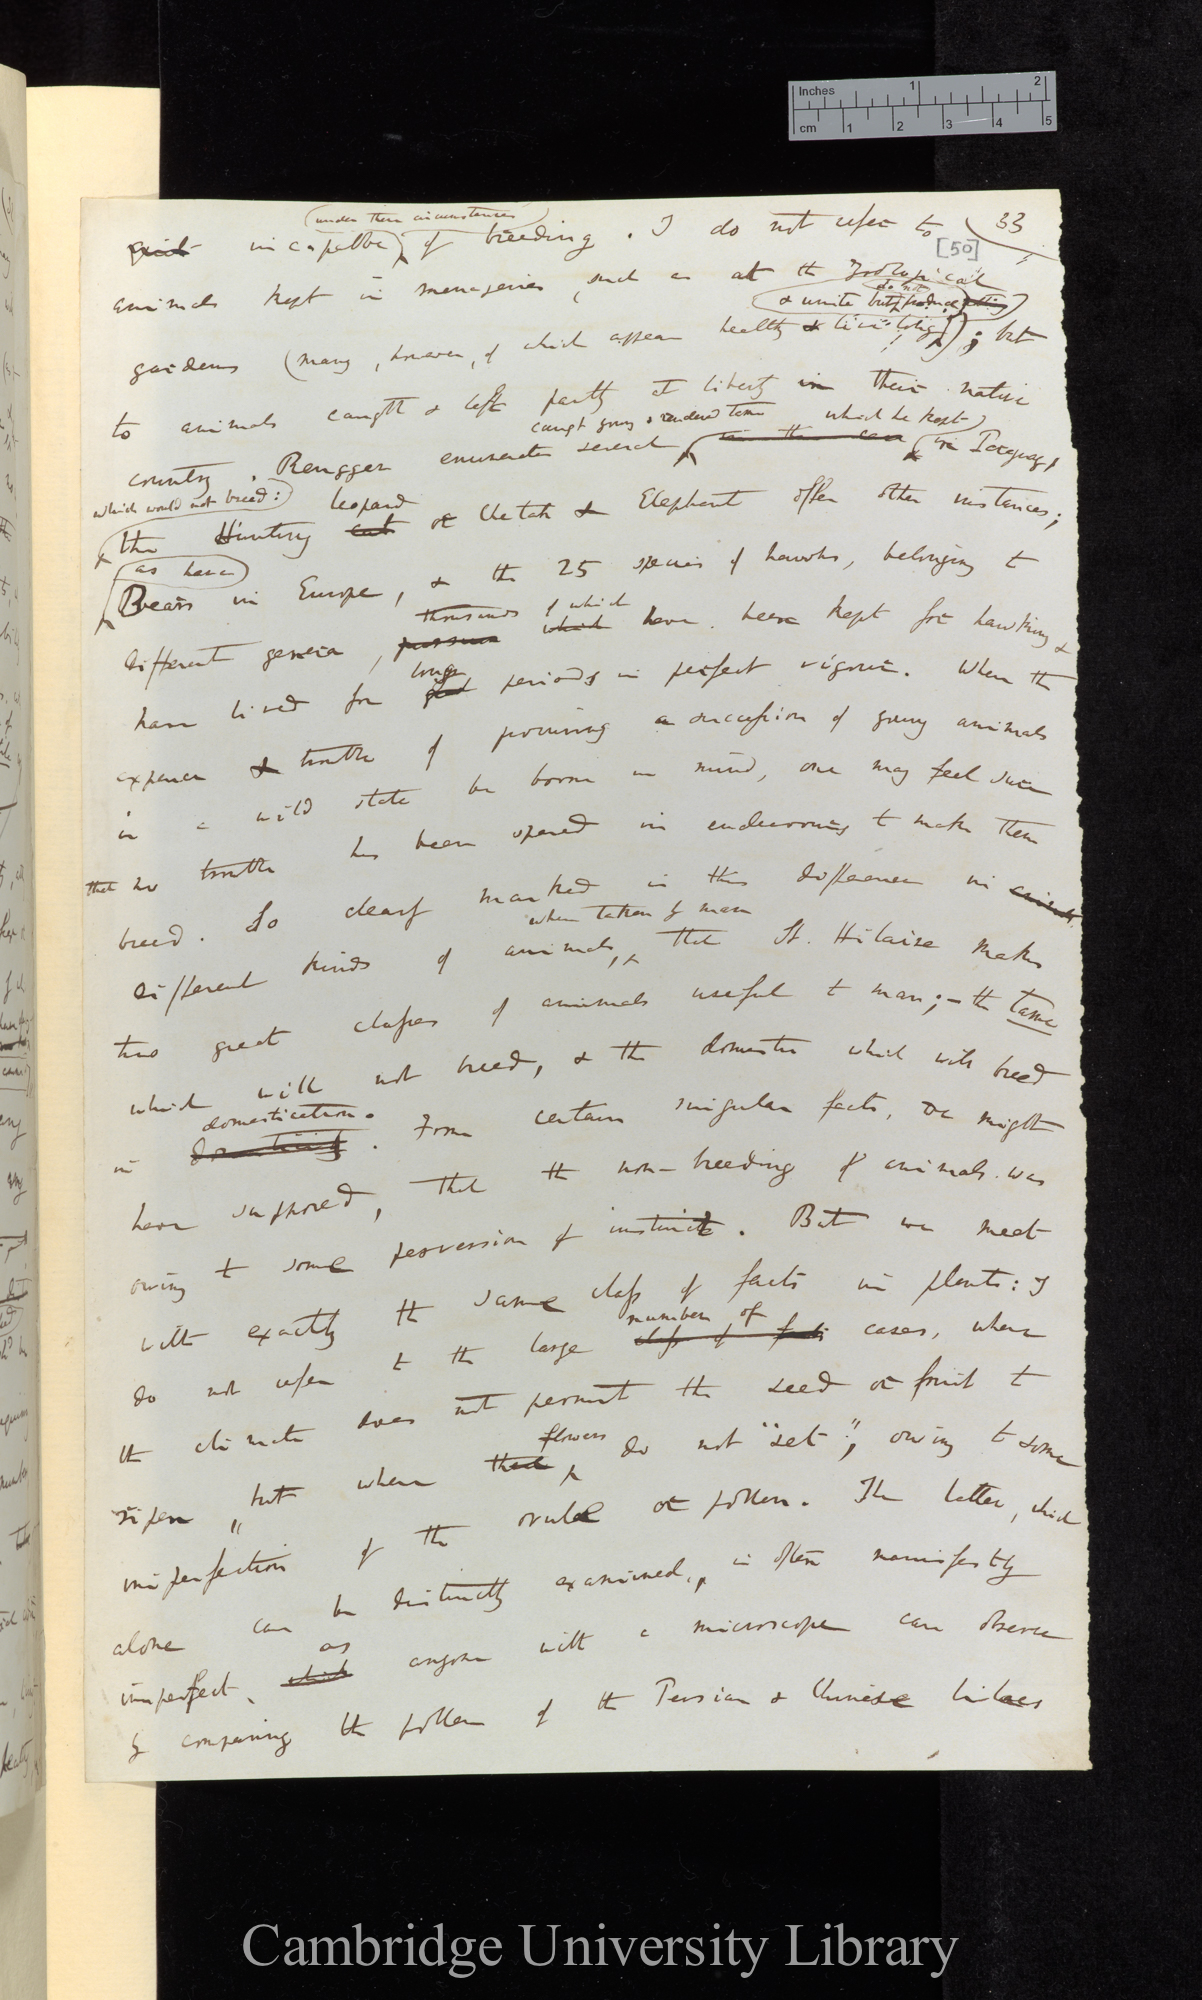 Inches 1 2
cm 1 2 3 4 5
33
[50]
under these circumstances
quite incapable of breeding. I do not refer to
animals kept in menageries, such as at the Zoological
do not
& unite but produce
gardens (many, however, of which appear healthy & live long); but
to animals caught & left partly at liberty in their native
caught young & rendered tame which he kept
country. Rengger enumerates several in the case in Paraguay,
which would not breed:
leopard
the Hunting cat or Chetah & Elephant offer other instances;
as have
Bears in Europe, & the 25 species of hawks, belonging to
thousands of which
different genera, which have been kept for hawking &
long
have lived for periods in perfect vigour. When the
expense & trouble of procuring a succession of young animals
in a wild state be borne in mind, one may feel sure
that no trouble has been spared in endeavours to make them
breed. So clearly marked is this difference in
when taken by man
different kinds of animals, that St. Hilaire makes
two great classes of animals useful to man;— the tame
which will not breed, & the domestic which will breed
domestication.
in. From certain singular facts, we might
have supposed, that the non-breeding of animals was
owing to some perversion of instinct. But we meet
with exactly the same class of facts in plants: I
number of
do not refer to the large class of facts cases, where
the climate does not permit the seed or fruit to
flowers
ripen, but where their do not "set", owing to some
imperfection of the ovule or pollen. The latter, which
alone can be distinctly examined, is often manifestly
as
imperfect, which anyone with a microscope can observe
by comparing the pollen of the Persian & Chinese lilacs
Cambridge University Library